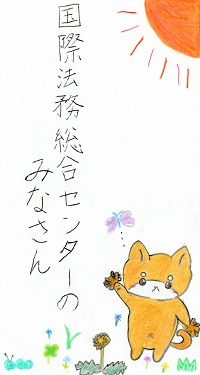 国際法務総合センターの
みなさん